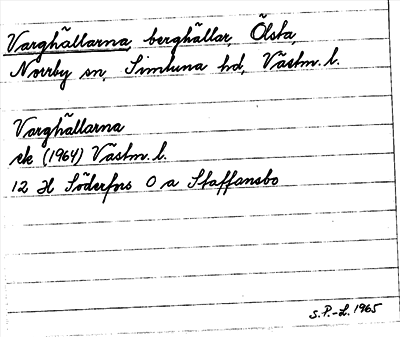 Varghällarna, berghällar, Ölsta,
Norrby sn, Simtuna hd, Västm. l.
Varghällarna
ek (1964) Västm. l.
12 H Söderfors O a Staffansbo
S.P.-L. 1965